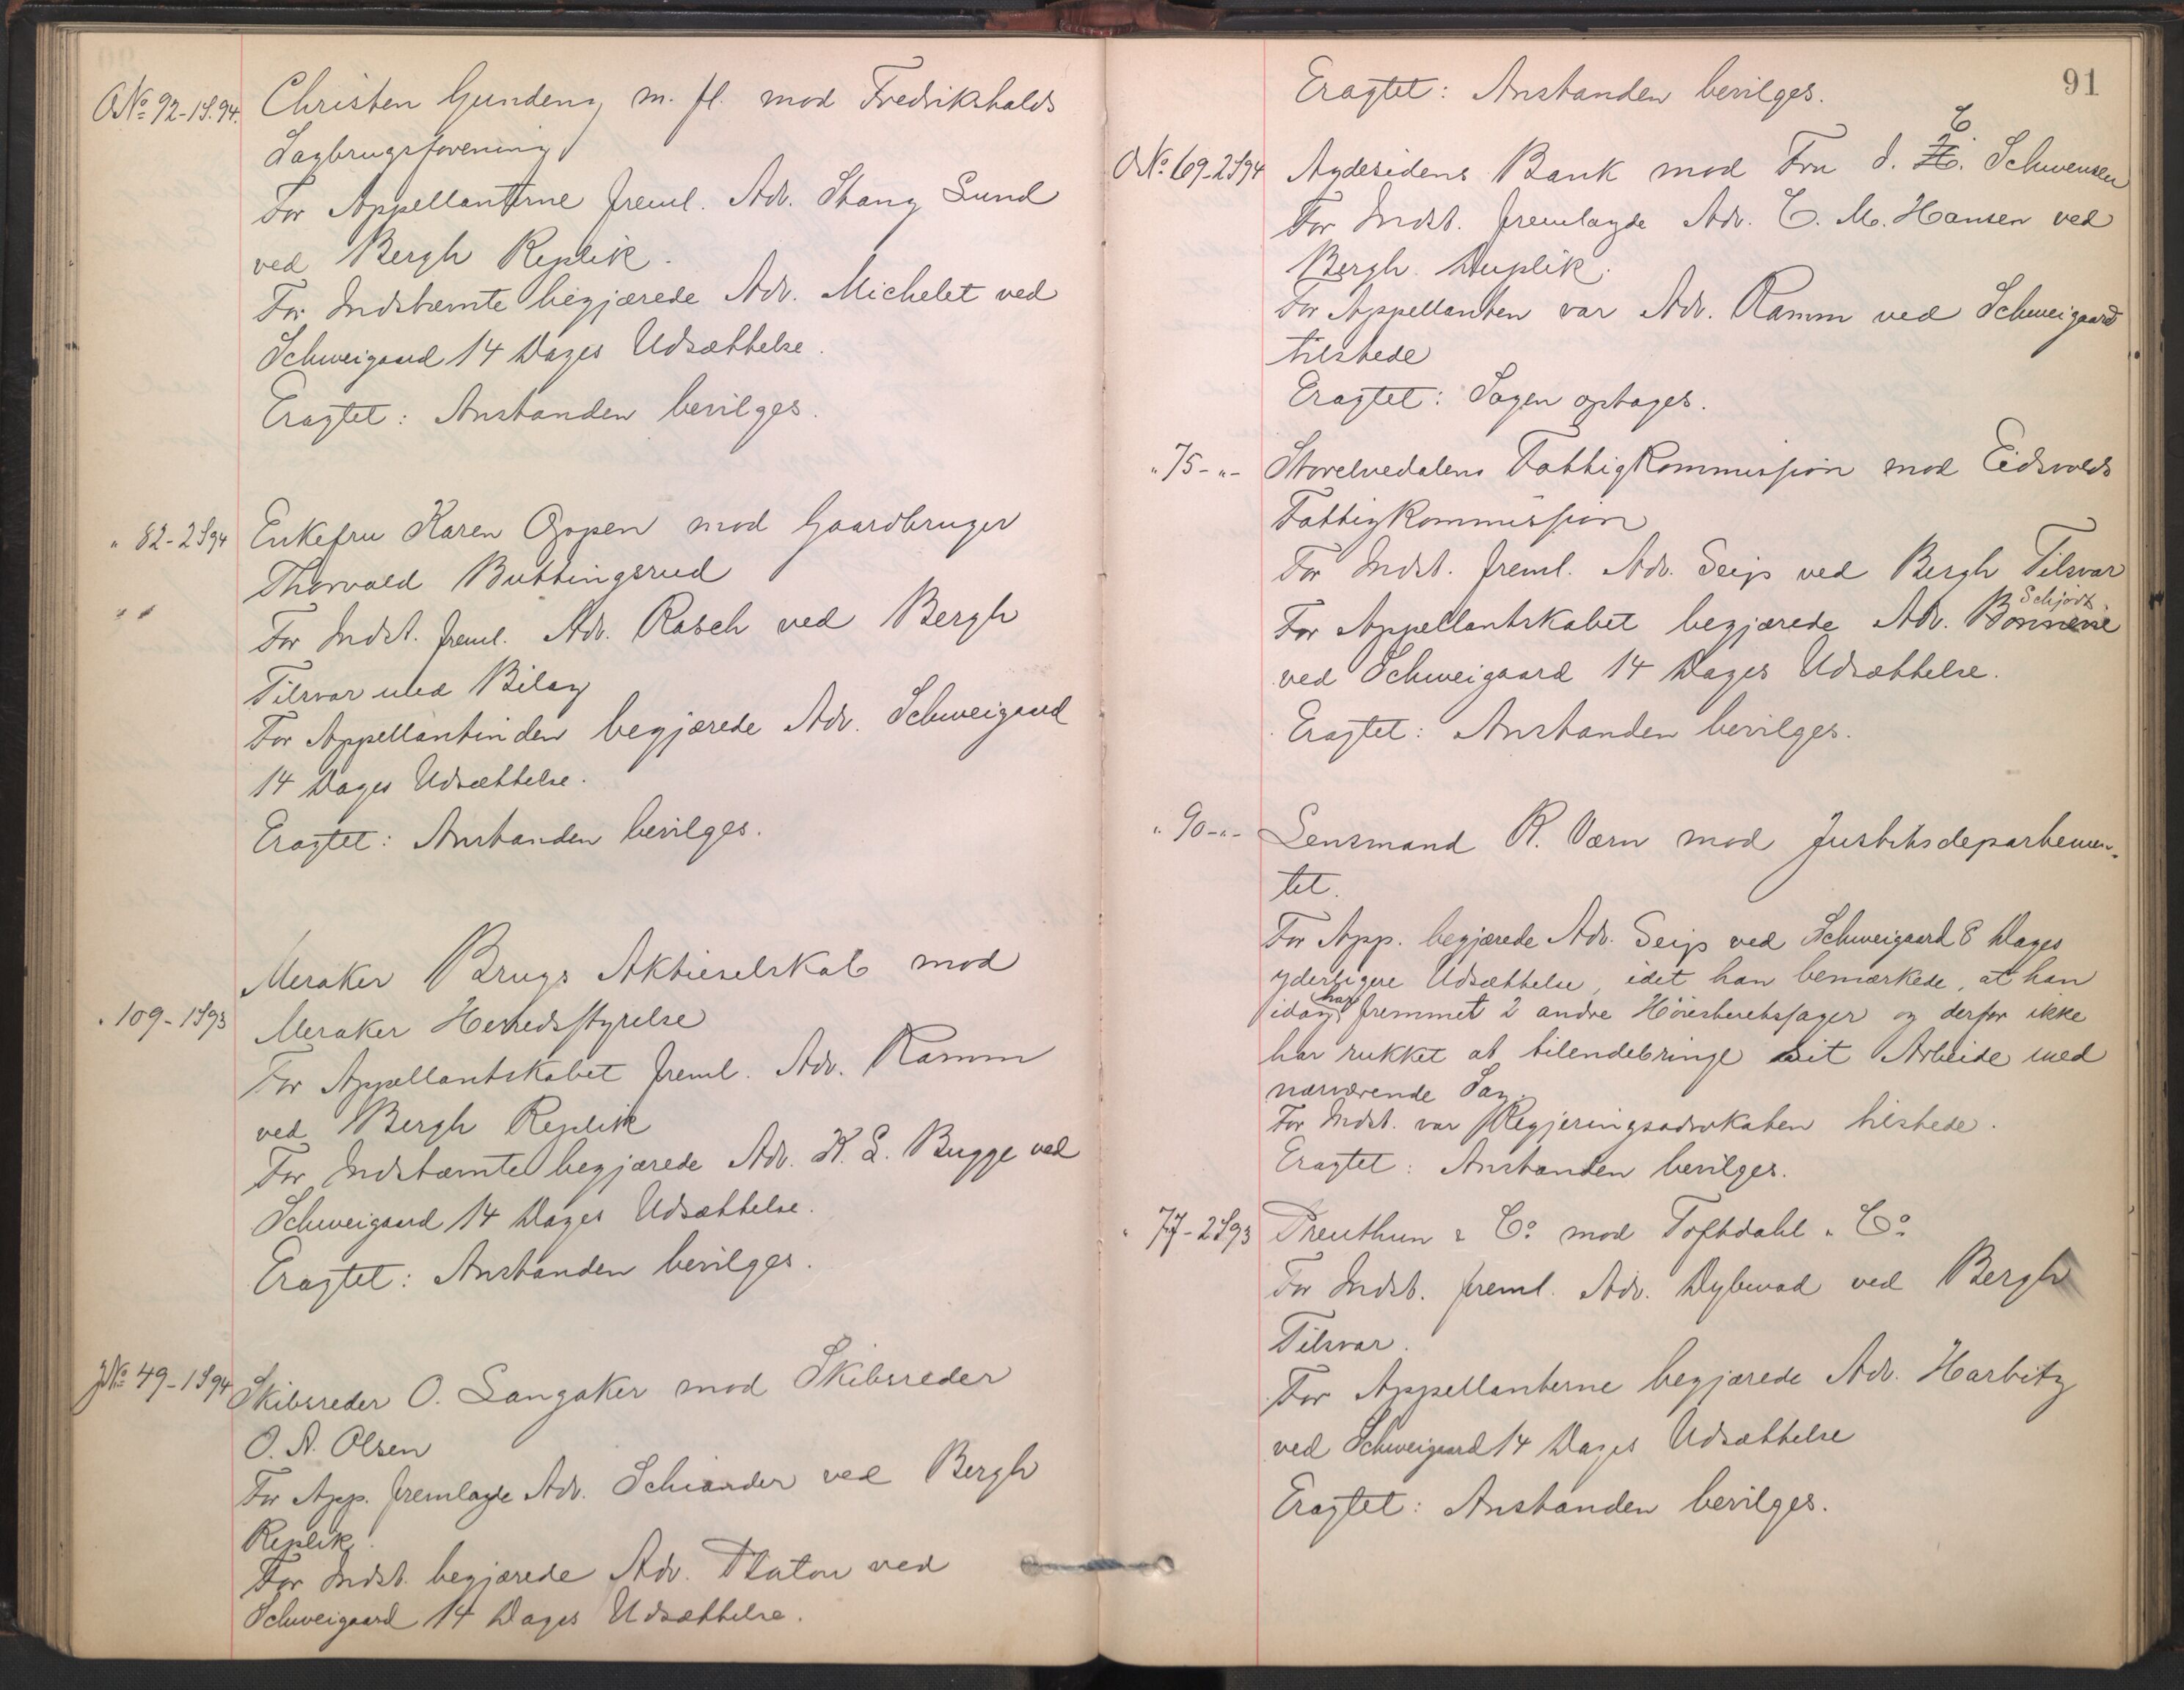 O.No. 92-1S.94. Christen Gundeng m. fl. mod Fredrikshalds
Sagbrugsforening
For Appellanterne freml. Adv. Stang Lund
ved Bergh Replik.
For Indstævnte begjærede Adv. Michelet ved
Schweigaard 14 Dages Udsættelse.
Eragtet: Anstanden bevilges.
" 82-2S94 Enkefru Karen Oppen mod Gaardbruger
Thorvald Buttingsrud
" "
For Indst. freml. Adv. Rasch ved Bergh
Tilsvar med Bilag
For Appellantinden begjærede Adv. Schweigaard
14 Dages Udsættelse.
Eragtet: Anstanden bevilges.
Meraker Brugs Aktieselskab mod
" 109-1S93 Meraker Herredsstyrelse
For Appellantskabet freml. Adv. Ramm
ved Bergh Replik
For Indstævnte begjærede Adv. K. L. Bugge ved
Schweigaard 14 Dages Udsættelse.
Eragtet: Anstanden bevilges.
J.No. 49-1S94 Skibsreder O. Langaker mod Skibsreder
O. A. Olsen
For App. fremlagde Adv. Schiander ved Bergh
Replik.
For Indst. begjærede Adv. Platou ved
Schweigaard 14 Dages Udsættelse.
91
Eragtet: Anstanden bevilges.
O.No. 69-2S94 Agdesidens Bank mod Fru J. H. C. Schwensen
For Indst. fremlagde Adv. C. M. Hansen ved
Bergh Duplik.
For Appellanten var Adv. Ramm ved Schweigaard
tilstede
Eragtet: Sagen optages.
" 75-"- Storelvedalens Fattigkommission mod Eidsvolds
Fattigkommission
For Indst. freml. Adv. Seip ved Bergh Tilsvar
Schjødt
For Appellantskabet begjærede Adv. Bonnevie
ved Schweigaard 14 Dages Udsættelse.
Eragtet: Anstanden bevilges.
" 90-"- Lensmand R. Værn mod Justitsdepartemen-
tet.
For App. begjærede Adv. Seip ved Schweigaard 8 Dages
yderligere Udsættelse, idet han bemærkede, at han
idag har fremmet 2 andre Höiesteretssager og derfor ikke
har rukket at tilendebringe sit Arbeide med
nærværende Sag.
For Indst. var Regjeringsadvokaten tilstede.
Eragtet: Anstanden bevilges.
" 77-2S93 Preuthun & Co. mod Toftdahl & Co.
For Indst. freml. Adv. Dybwad ved Bergh
Tilsvar.
For Appellanterne begjærede Adv. Harbitz
ved Schweigaard 14 Dages Udsættelse
Eragtet: Anstanden bevilges.